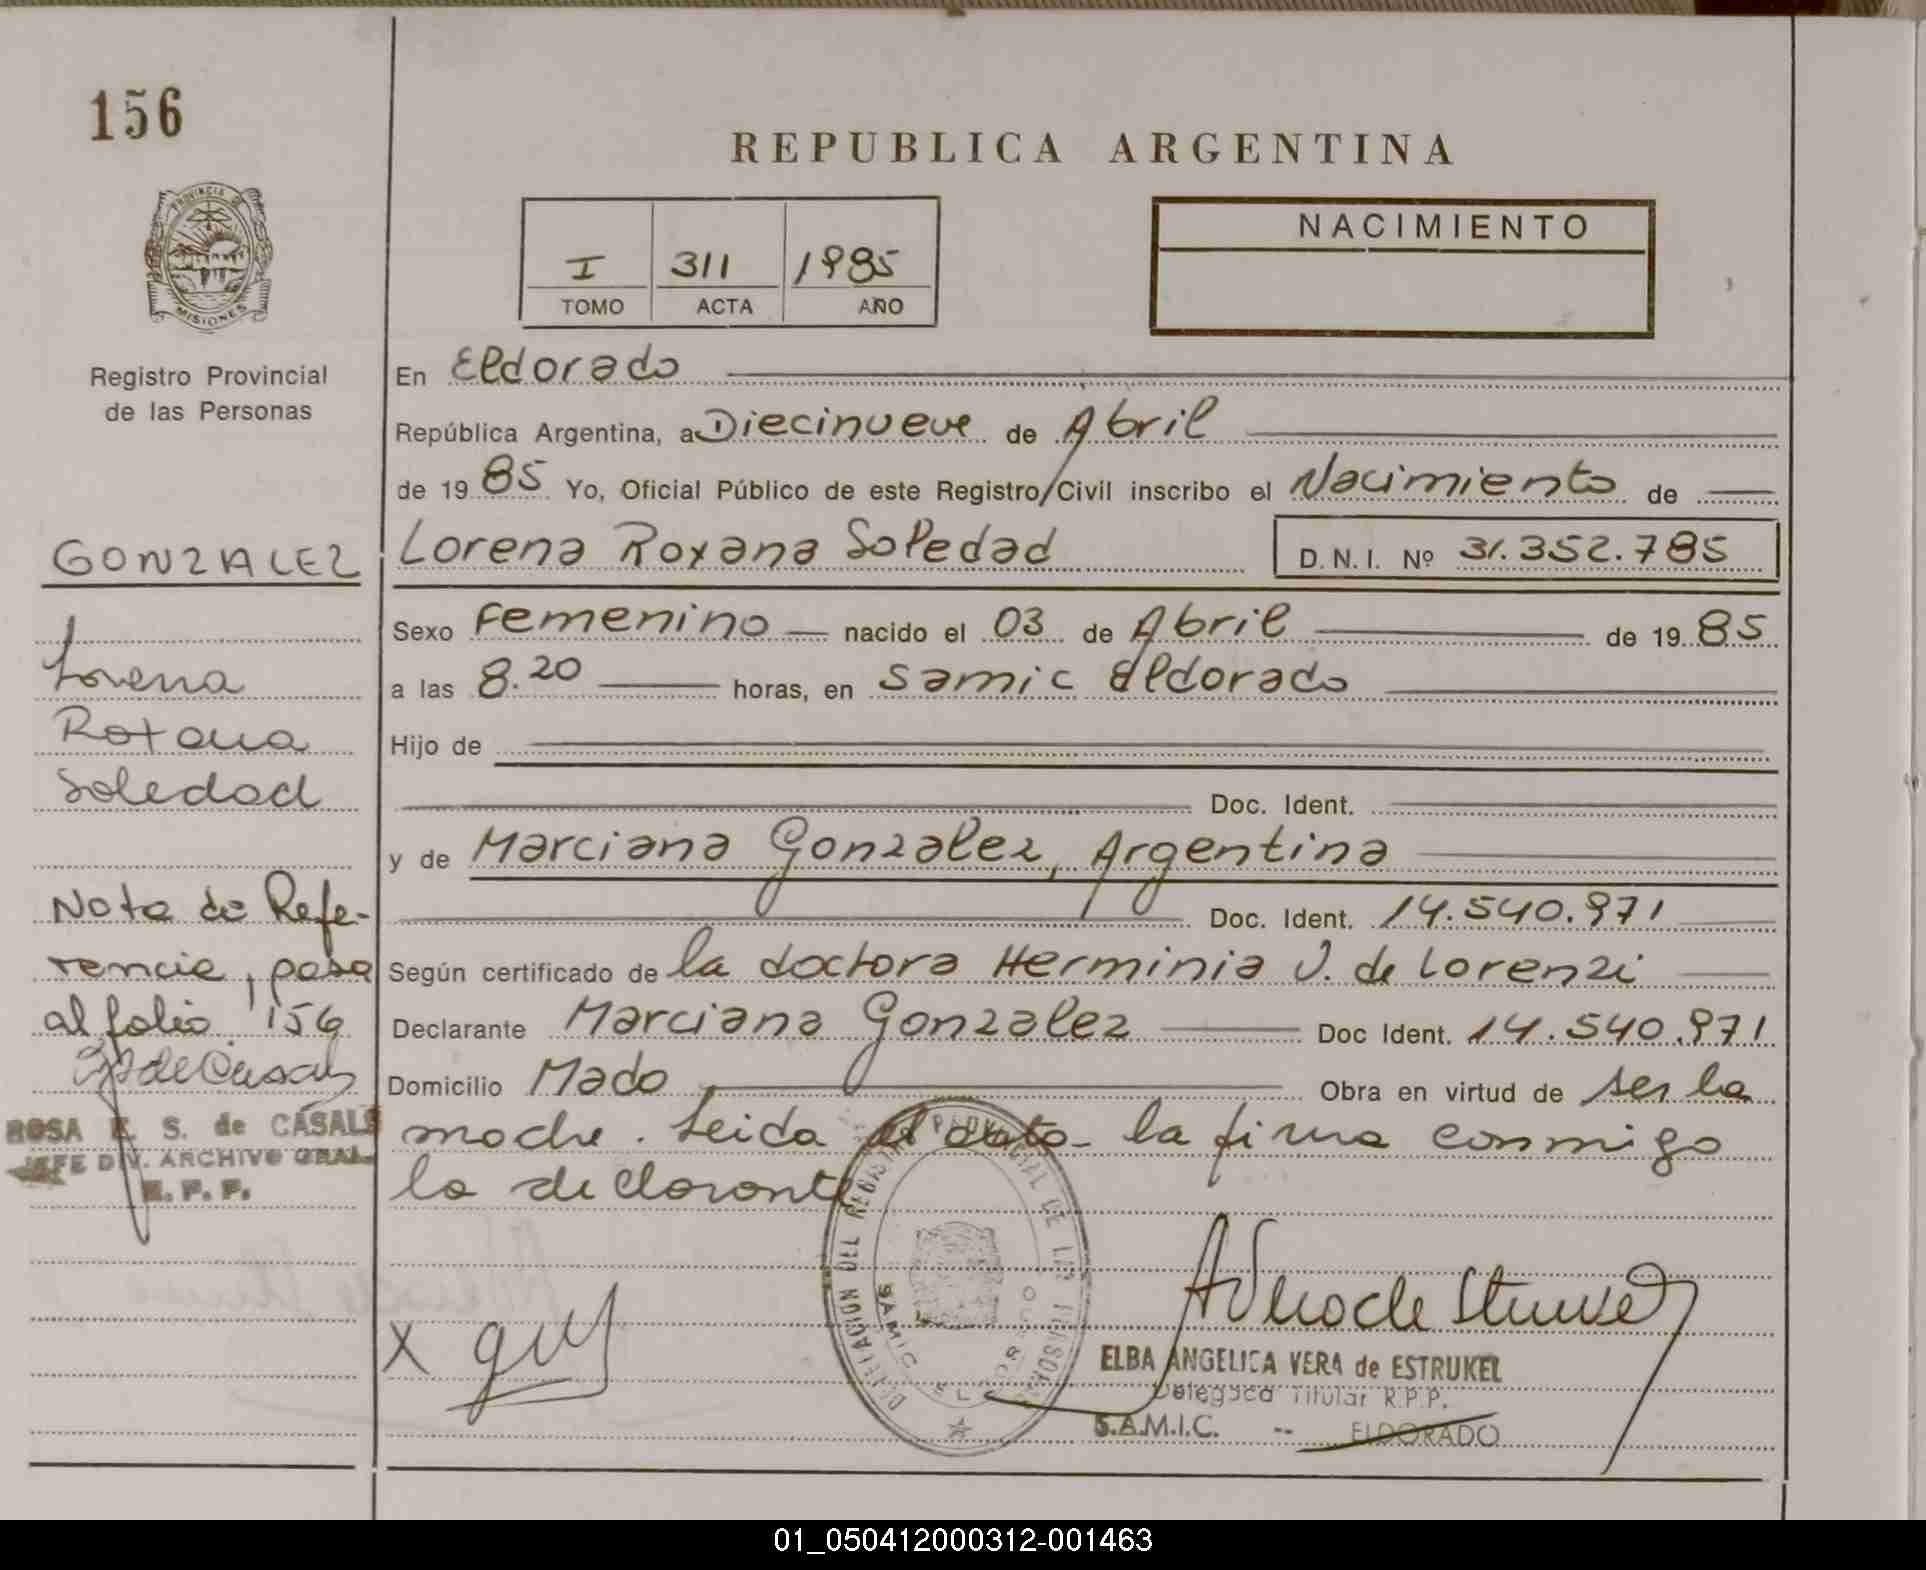 156
REPUBLICA ARGENTINA
PROVINCIA DE
MISIONES
Registro Provincial
de las Personas
I 311 1985
TOMO ACTA AÑO
NACIMIENTO
En Eldorado
República Argentina, a Diecinueve de Abril
de 19 85 Yo, Oficial Público de este Registro Civil inscribo el Nacimiento de
Lorena Roxana Soledad D. N. I. Nº 31.352.785
Sexo Femenino nacido el 03 de Abril de 19 85
a las 8.20 horas, en Samic Eldorado
Hijo de
Doc. Ident.
y de Marciana Gonzalez, Argentina
Doc. Ident. 14.540.971
Según certificado de la doctora Herminia V. de Lorenzi
Declarante Marciana Gonzalez Doc Ident. 14.540.971
Domicilio Mado Obra en virtud de ser la
madre. Leida el acta la firma conmigo
la declarante
GONZALEZ
Lorena
Roxana
Soledad
Nota de Refe-
rencia, pasa
al folio 156
ROSA E. S. de CASALS
JEFE DIV. ARCHIVO GRAL.
R. P. P.
X
DELEGACION DEL REGISTRO PROVINCIAL DE LAS PERSONAS
SAMIC ELDORADO
ELBA ANGELICA VERA de ESTRUKEL
Delegada Titular R.P.P.
S.A.M.I.C. -- ELDORADO
01_050412000312-001463